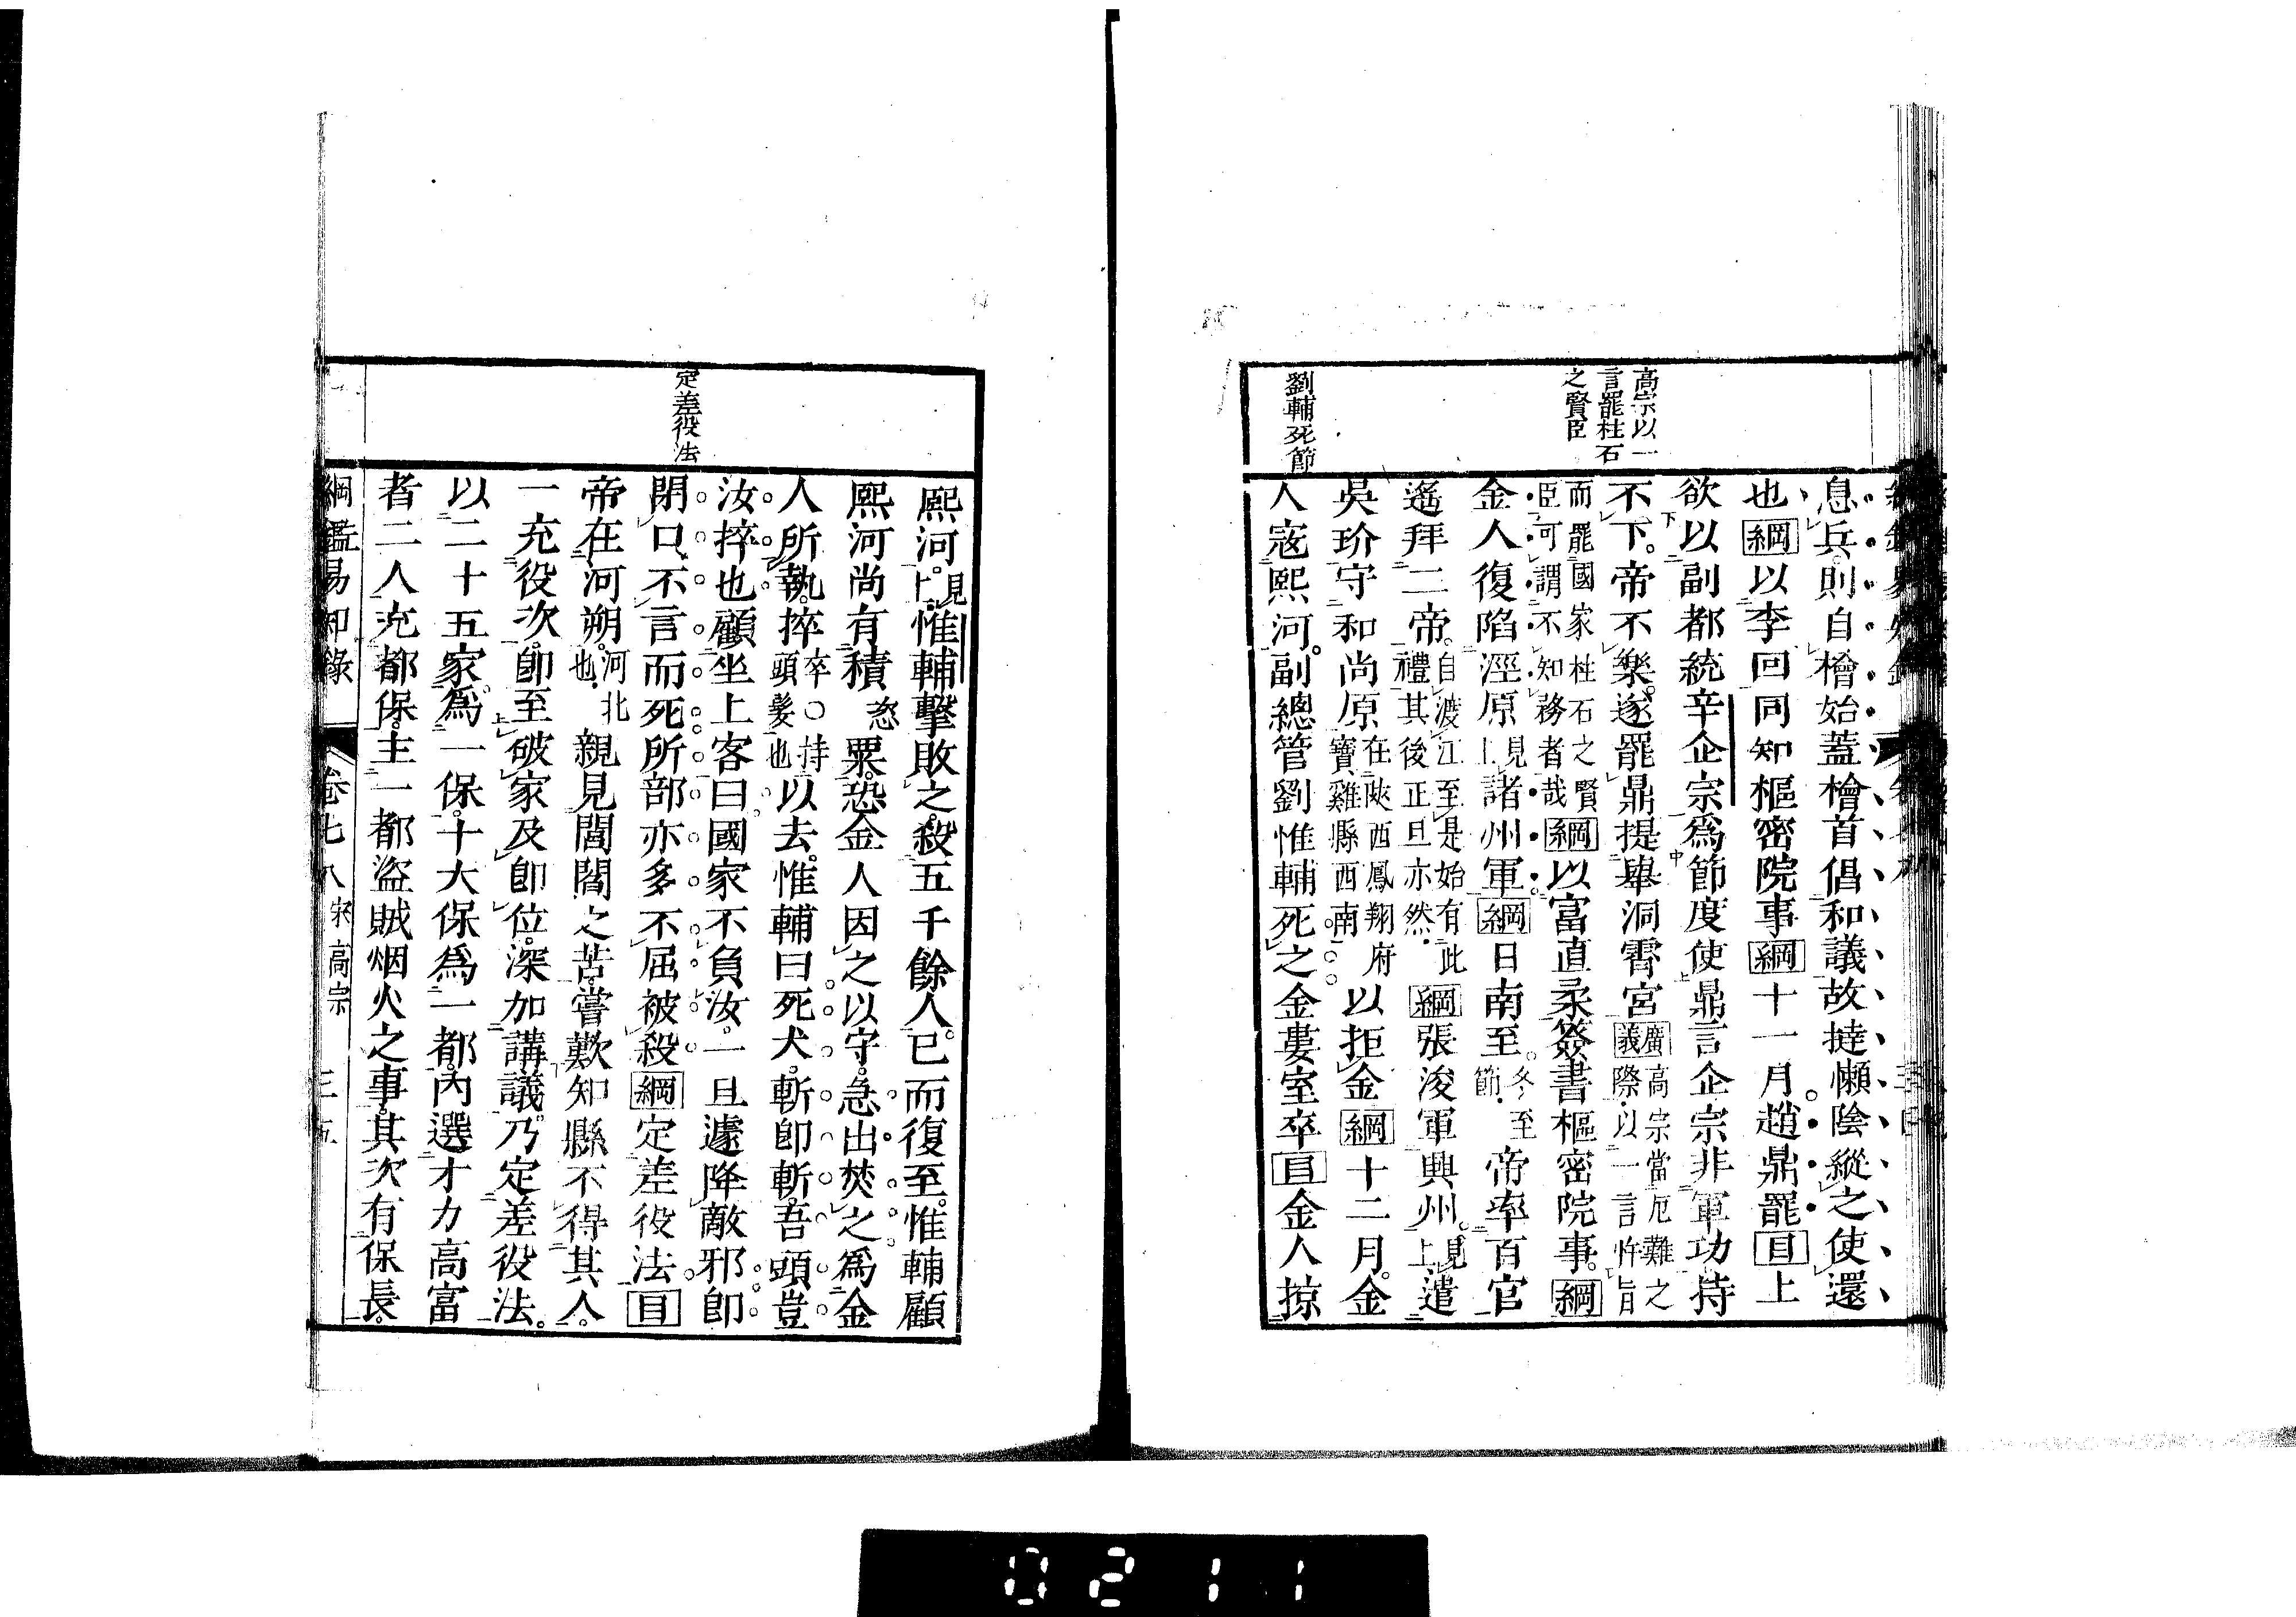 高宗以一
言罷柱石
之賢臣
劉輔死節
息兵則自檜始蓋檜首倡和議故撻懶陰縱之使還
也綱以李回同知樞密院事綱十一月趙鼎罷目上
欲以副都統辛企宗爲節度使鼎言企宗非軍功持
不下帝不樂遂罷鼎提舉洞霄宮廣義高宗當厄難之際以一言忤旨
而罷國家柱石之賢臣可謂不知務者哉綱以富直柔簽書樞密院事綱
金人復陷涇原見上諸州軍綱日南至冬至節帝率百官
遙拜二帝自渡江至是始有此禮其後正旦亦然綱張浚軍興州見上遣
吳玠守和尚原在陝西鳳翔府寶雞縣西南以拒金綱十二月金
人寇熙河副總管劉惟輔死之金婁室卒目金人掠
定差役法
熙河見上惟輔擊敗之殺五千餘人已而復至惟輔顧
熙河尚有積恣粟恐金人因之以守急出焚之爲金
人所執捽卒○持頭髮也以去惟輔曰死犬斬卽斬吾頭豈
汝捽也顧坐上客曰國家不負汝一旦遽降敵邪卽
閉口不言而死所部亦多不屈被殺綱定差役法目
帝在河朔河北也親見閭閻之苦嘗歎知縣不得其人
一充役次卽至破家及卽位深加講議乃定差役法
以二十五家爲一保十大保爲一都內選才力高富
者二人充都保主一都盜賊烟火之事其次有保長
綱鑑易知錄 卷七八 宋高宗 三五
0211